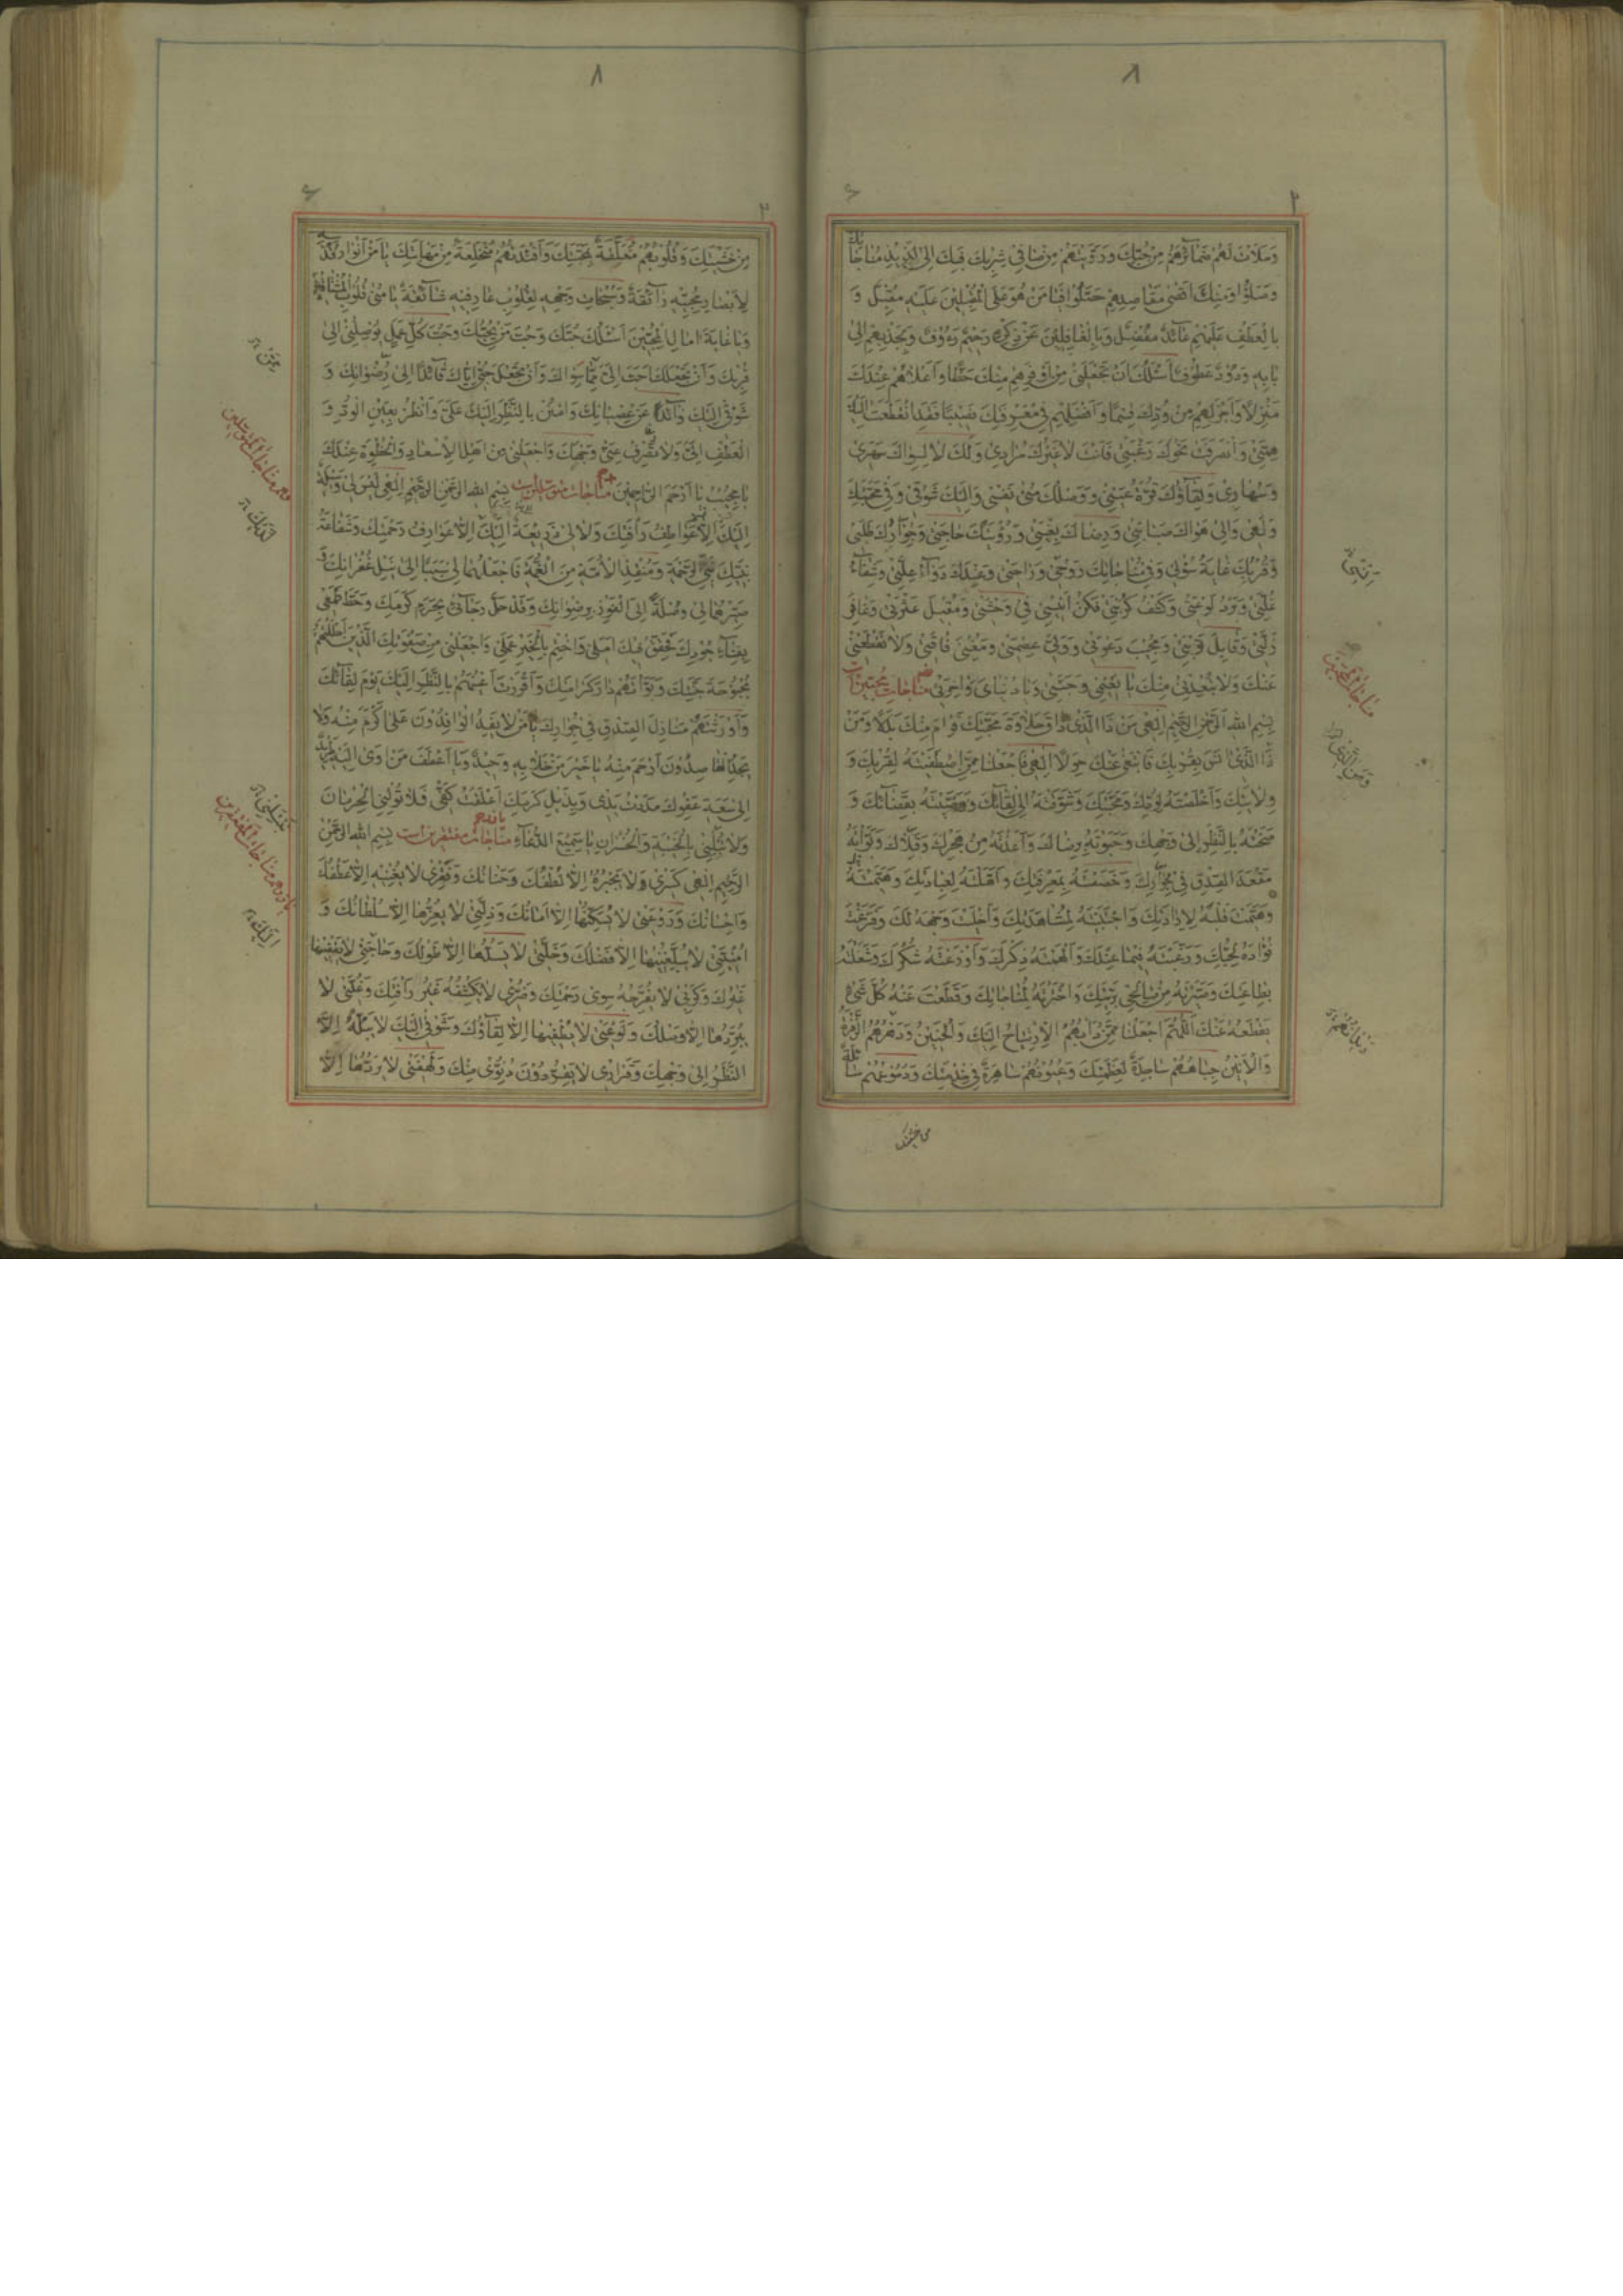 ٨
٢
وَمَلَأْتَ لَهُمْ ضَمَائِرَهُمْ مِنْ حُبِّكَ وَرَوَّيْتَهُمْ مِنْ صَافِي شِرْبِكَ فَبِكَ إِلَى لَذِيذِ مُنَاجَاتِكَ
وَصَلُوا وَمِنْكَ أَقْصَى مَقَاصِدِهِمْ حَصَّلُوا فَيَا مَنْ هُوَ عَلَى الْمُقْبِلِينَ عَلَيْهِ مُقْبِلٌ وَ
بِالْعَطْفِ عَلَيْهِمْ عَائِدٌ مُفْضِلٌ وَبِالْغَافِلِينَ عَنْ ذِكْرِهِ رَحِيمٌ رَءُوفٌ وَبِجَذْبِهِمْ إِلَى
بَابِهِ وَدُودٌ عَطُوفٌ أَسْأَلُكَ أَنْ تَجْعَلَنِي مِنْ أَوْفَرِهِمْ مِنْكَ حَظًّا وَأَعْلَاهُمْ عِنْدَكَ
مَنْزِلًا وَأَجْزَلِهِمْ مِنْ وُدِّكَ قِسْمًا وَأَفْضَلِهِمْ فِي مَعْرِفَتِكَ نَصِيبًا فَقَدِ انْقَطَعَتْ إِلَيْكَ
هِمَّتِي وَانْصَرَفَتْ نَحْوَكَ رَغْبَتِي فَأَنْتَ لَا غَيْرُكَ مُرَادِي وَلَكَ لَا لِسِوَاكَ سَهَرِي
وَسُهَادِي وَلِقَاؤُكَ قُرَّةُ عَيْنِي وَوَصْلُكَ مُنَى نَفْسِي وَإِلَيْكَ شَوْقِي وَفِي مَحَبَّتِكَ
وَلَهِي وَإِلَى هَوَاكَ صَبَابَتِي وَرِضَاكَ بُغْيَتِي وَرُؤْيَتُكَ حَاجَتِي وَجِوَارُكَ طَلَبِي
وَقُرْبُكَ غَايَةُ سُؤْلِي وَفِي مُنَاجَاتِكَ رَوْحِي وَرَاحَتِي وَعِنْدَكَ دَوَاءُ عِلَّتِي وَشِفَاءُ
غُلَّتِي وَبَرْدُ لَوْعَتِي وَكَشْفُ كُرْبَتِي فَكُنْ أَنِيسِي فِي وَحْشَتِي وَمُقِيلَ عَثْرَتِي وَغَافِرَ
زَلَّتِي وَقَابِلَ تَوْبَتِي وَمُجِيبَ دَعْوَتِي وَوَلِيَّ عِصْمَتِي وَمُغْنِيَ فَاقَتِي وَلَا تَقْطَعْنِي
عَنْكَ وَلَا تُبْعِدْنِي مِنْكَ يَا نَعِيمِي وَجَنَّتِي وَيَا دُنْيَايَ وَآخِرَتِي مناجات محبین
بِسْمِ اللهِ الرَّحْمٰنِ الرَّحِيمِ إِلٰهِي مَنْ ذَا الَّذِي ذَاقَ حَلَاوَةَ مَحَبَّتِكَ فَرَامَ مِنْكَ بَدَلًا وَمَنْ
ذَا الَّذِي أَنِسَ بِقُرْبِكَ فَابْتَغَى عَنْكَ حِوَلًا إِلٰهِي فَاجْعَلْنَا مِمَّنِ اصْطَفَيْتَهُ لِقُرْبِكَ وَ
وِلَايَتِكَ وَأَخْلَصْتَهُ لِوُدِّكَ وَمَحَبَّتِكَ وَشَوَّقْتَهُ إِلَى لِقَائِكَ وَرَضَّيْتَهُ بِقَضَائِكَ وَ
مَنَحْتَهُ بِالنَّظَرِ إِلَى وَجْهِكَ وَحَبَوْتَهُ بِرِضَاكَ وَأَعَذْتَهُ مِنْ هَجْرِكَ وَقِلَاكَ وَبَوَّأْتَهُ
مَقْعَدَ الصِّدْقِ فِي جِوَارِكَ وَخَصَصْتَهُ بِمَعْرِفَتِكَ وَأَهَّلْتَهُ لِعِبَادَتِكَ
وَهَيَّمْتَ قَلْبَهُ لِإِرَادَتِكَ وَاجْتَبَيْتَهُ لِمُشَاهَدَتِكَ وَأَخْلَيْتَ وَجْهَهُ لَكَ وَفَرَّغْتَ
فُؤَادَهُ لِحُبِّكَ وَرَغَّبْتَهُ فِيمَا عِنْدَكَ وَأَلْهَمْتَهُ ذِكْرَكَ وَأَوْزَعْتَهُ شُكْرَكَ وَشَغَلْتَهُ
بِطَاعَتِكَ وَصَيَّرْتَهُ مِنْ صَالِحِي بَرِيَّتِكَ وَاخْتَرْتَهُ لِمُنَاجَاتِكَ وَقَطَعْتَ عَنْهُ كُلَّ شَيْءٍ
يَقْطَعُهُ عَنْكَ اللّٰهُمَّ اجْعَلْنَا مِمَّنْ دَأْبُهُمُ الِارْتِيَاحُ إِلَيْكَ وَالْحَنِينُ وَدَهْرُهُمُ الزَّفْرَةُ
وَالْأَنِينُ جِبَاهُهُمْ سَاجِدَةٌ لِعَظَمَتِكَ وَعُيُونُهُمْ سَاهِرَةٌ فِي خِدْمَتِكَ وَدُمُوعُهُمْ سَائِلَةٌ
من خشيتك
مناجات المحبين
٨
٢
مِنْ خَشْيَتِكَ وَقُلُوبُهُمْ مُتَعَلِّقَةٌ بِمَحَبَّتِكَ وَأَفْئِدَتُهُمْ مُنْخَلِعَةٌ مِنْ مَهَابَتِكَ يَا مَنْ أَنْوَارُ قُدْسِهِ
لِأَبْصَارِ مُحِبِّيهِ رَائِقَةٌ وَسُبُحَاتُ وَجْهِهِ لِقُلُوبِ عَارِفِيهِ شَائِقَةٌ يَا مُنَى قُلُوبِ الْمُشْتَاقِينَ
وَيَا غَايَةَ آمَالِ الْمُحِبِّينَ أَسْأَلُكَ حُبَّكَ وَحُبَّ مَنْ يُحِبُّكَ وَحُبَّ كُلِّ عَمَلٍ يُوصِلُنِي إِلَى
قُرْبِكَ وَأَنْ تَجْعَلَكَ أَحَبَّ إِلَيَّ مِمَّا سِوَاكَ وَأَنْ تَجْعَلَ حُبِّي إِيَّاكَ قَائِدًا إِلَى رِضْوَانِكَ وَ
شَوْقِي إِلَيْكَ ذَائِدًا عَنْ عِصْيَانِكَ وَامْنُنْ بِالنَّظَرِ إِلَيْكَ عَلَيَّ وَانْظُرْ بِعَيْنِ الْوُدِّ وَ
الْعَطْفِ إِلَيَّ وَلَا تَصْرِفْ عَنِّي وَجْهَكَ وَاجْعَلْنِي مِنْ أَهْلِ الْإِسْعَادِ وَالْحُظْوَةِ عِنْدَكَ
يَا مُجِيبُ يَا أَرْحَمَ الرَّاحِمِينَ مناجات متوسلین است بِسْمِ اللهِ الرَّحْمٰنِ الرَّحِيمِ إِلٰهِي لَيْسَ لِي وَسِيلَةٌ
إِلَيْكَ إِلَّا عَوَاطِفُ رَأْفَتِكَ وَلَا لِي ذَرِيعَةٌ إِلَيْكَ إِلَّا عَوَارِفُ رَحْمَتِكَ وَشَفَاعَةُ
نَبِيِّكَ نَبِيِّ الرَّحْمَةِ وَمُنْقِذِ الْأُمَّةِ مِنَ الْغُمَّةِ فَاجْعَلْهُمَا لِي سَبَبًا إِلَى نَيْلِ غُفْرَانِكَ وَ
صَيِّرْهُمَا لِي وُصْلَةً إِلَى الْفَوْزِ بِرِضْوَانِكَ وَقَدْ حَلَّ رَجَائِي بِحَرَمِ كَرَمِكَ وَحَطَّ طَمَعِي
بِفِنَاءِ جُودِكَ فَحَقِّقْ فِيكَ أَمَلِي وَاخْتِمْ بِالْخَيْرِ عَمَلِي وَاجْعَلْنِي مِنْ صَفْوَتِكَ الَّذِينَ أَحْلَلْتَهُمْ
بُحْبُوحَةَ جَنَّتِكَ وَبَوَّأْتَهُمْ دَارَ كَرَامَتِكَ وَأَقْرَرْتَ أَعْيُنَهُمْ بِالنَّظَرِ إِلَيْكَ يَوْمَ لِقَائِكَ
وَأَوْرَثْتَهُمْ مَنَازِلَ الصِّدْقِ فِي جِوَارِكَ يَا مَنْ لَا يَفِدُ الْوَافِدُونَ عَلَى أَكْرَمَ مِنْهُ وَلَا
يَجِدُ الْقَاصِدُونَ أَرْحَمَ مِنْهُ يَا خَيْرَ مَنْ خَلَا بِهِ وَحِيدٌ وَيَا أَعْطَفَ مَنْ أَوَى إِلَيْهِ طَرِيدٌ
إِلَى سَعَةِ عَفْوِكَ مَدَدْتُ يَدِي وَبِذَيْلِ كَرَمِكَ أَعْلَقْتُ كَفِّي فَلَا تُوَلِّنِي الْحِرْمَانَ
وَلَا تُبْلِنِي بِالْخَيْبَةِ وَالْخُسْرَانِ يَا سَمِيعَ الدُّعَاءِ مناجات مفتقرین است بِسْمِ اللهِ الرَّحْمٰنِ
الرَّحِيمِ إِلٰهِي كَسْرِي وَلَا يَجْبُرُهُ إِلَّا لُطْفُكَ وَحَنَانُكَ وَفَقْرِي لَا يُغْنِيهِ إِلَّا عَطْفُكَ
وَإِحْسَانُكَ وَرَوْعَتِي لَا يُسَكِّنُهَا إِلَّا أَمَانُكَ وَذِلَّتِي لَا يُعِزُّهَا إِلَّا سُلْطَانُكَ وَ
أُمْنِيَّتِي لَا يُبَلِّغُنِيهَا إِلَّا فَضْلُكَ وَخَلَّتِي لَا يَسُدُّهَا إِلَّا طَوْلُكَ وَحَاجَتِي لَا يَقْضِيهَا
غَيْرُكَ وَكَرْبِي لَا يُفَرِّجُهُ سِوَى رَحْمَتِكَ وَضُرِّي لَا يَكْشِفُهُ غَيْرُ رَأْفَتِكَ وَغُلَّتِي لَا
يُبَرِّدُهَا إِلَّا وَصْلُكَ وَلَوْعَتِي لَا يُطْفِيهَا إِلَّا لِقَاؤُكَ وَشَوْقِي إِلَيْكَ لَا يَبُلُّهُ إِلَّا
النَّظَرُ إِلَى وَجْهِكَ وَقَرَارِي لَا يَقِرُّ دُونَ دُنُوِّي مِنْكَ وَلَهْفَتِي لَا يَرُدُّهَا إِلَّا